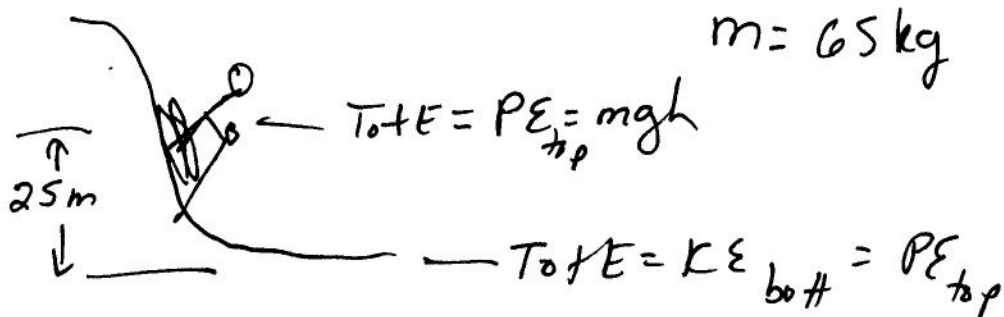 m = 65 kg
Tot E = PE top = mgh
25 m
Tot E = KE bott = PE top